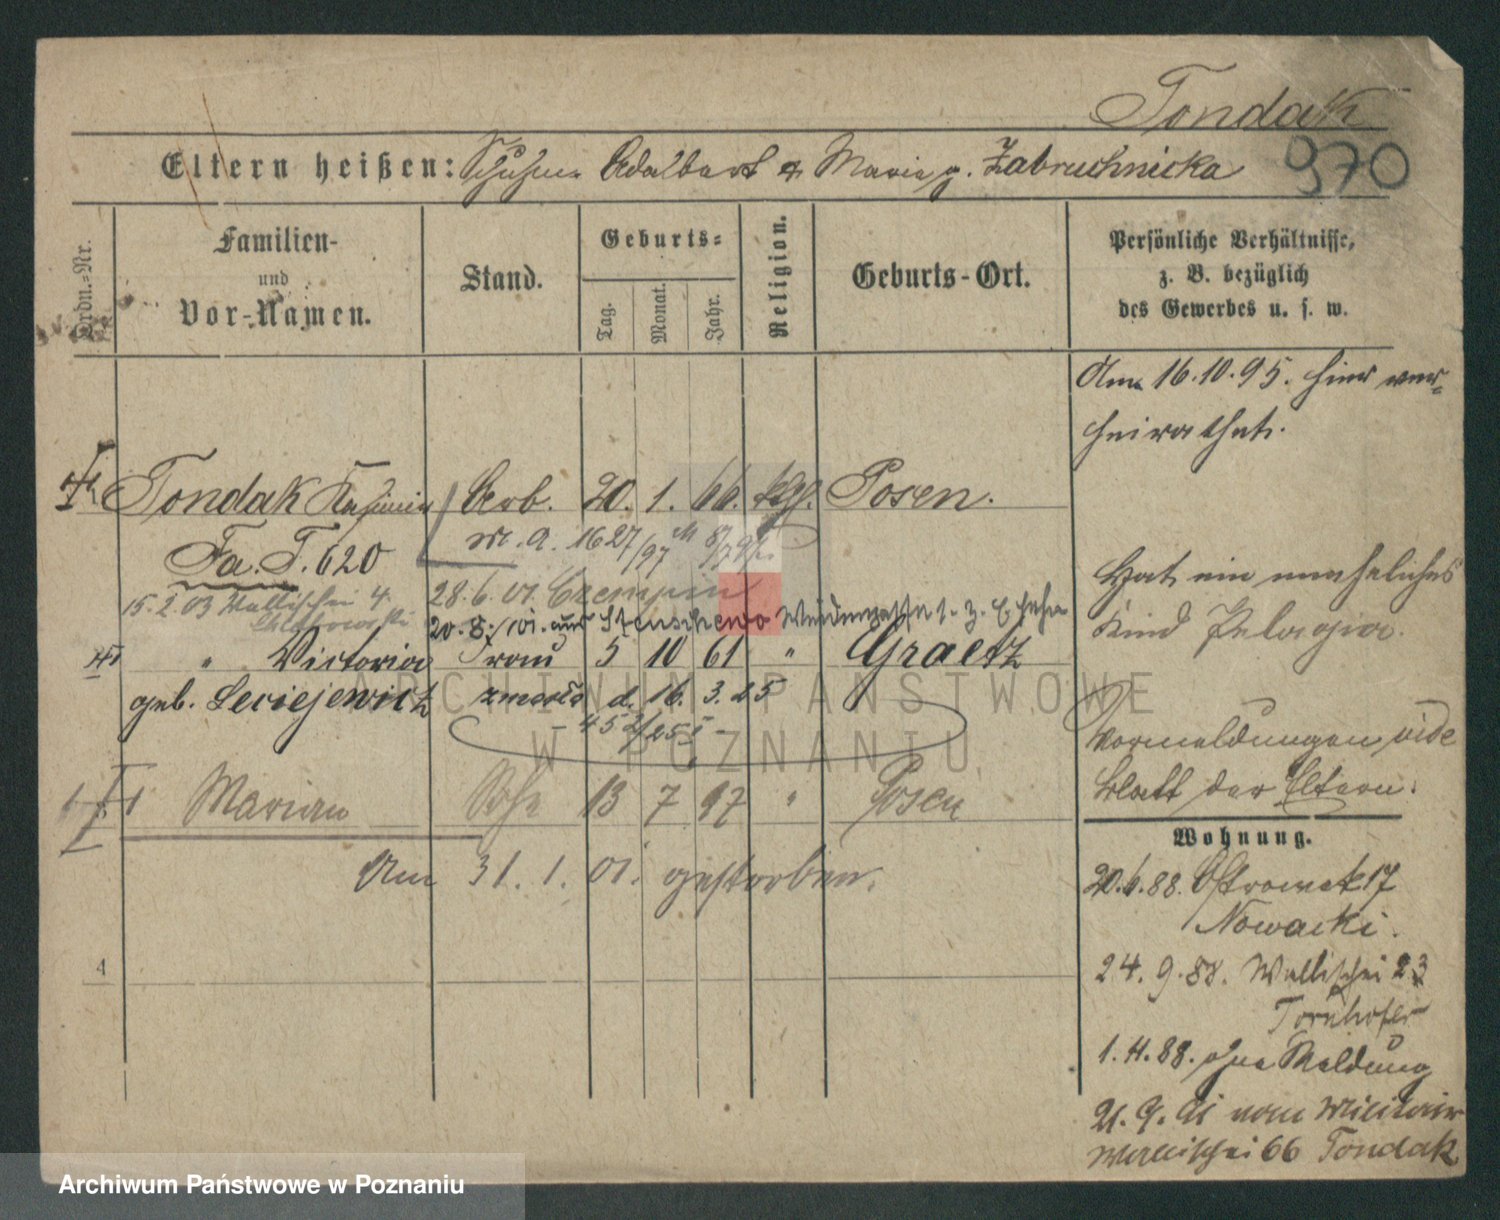 Tondak
970
Eltern heißen: Schuhm. Adalbert & Marie g. Zabruchnicka
Ordn.-Nr.
Familien-
und
Vor-Namen.
Stand.
Geburts-
Tag.
Monat.
Jahr.
Religion.
Geburts-Ort.
Persönliche Verhältnisse,
z. B. bezüglich
des Gewerbes u. s. w.
Am 16.10.95. hier ver-
heirathet.
Tondak Kasimir Arb. 20. 1. 66. kgl. Posen.
1627/97
Fa. T. 620
Hat ein uneheliches
Kind Pelagia.
15.2.03 Wallischei 4
28.6.01 Czempin
20.8.01. aus Stenschewo
" Victoria Frau 5 10 61 " Graetz
geb. Leciejewicz zmarła d. 16. 3. 25
- 452/25 I -
Vormeldungen vide
Blatt der Eltern.
Marian Sohn 13 7 97 " Posen
Am 31. 1. 01. gestorben.
4
Wohnung.
20.6.88. Ostrowek 17
Nowacki.
24.9.88. Wallischei 23
Tornhofer
1.11.88. ohne Meldung
21.9.91 vom Militair
Wallischei 66 Tondak
ARCHIWUM PAŃSTWOWE
W POZNANIU
Archiwum Państwowe w Poznaniu